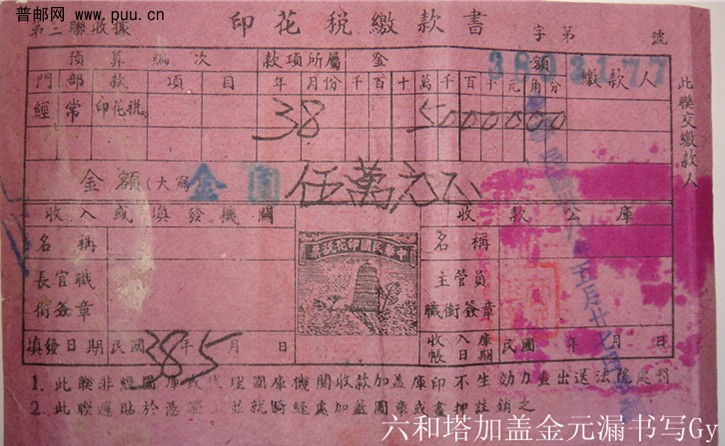 普邮网 www.puu.cn
印花稅繳款書
第二聯收據
字第 號
預算編次 款項所屬 金額 繳款人
門 部 款 項 目 年 月份 千百十萬千百十元角分
38632177
經常 印花稅 38 5000000
金額(大寫) 金圓 伍萬元正
收入或填發機關 收款公庫
名稱 名稱
中華民國印花稅票
長官職銜簽章 主管員職銜簽章
填發日期 民國38年5月 日 收帳 入庫日期 民國 年 月 日
此聯交繳款人
1. 此聯非經國庫或代理國庫機關收款加蓋庫印不生效力查出送法院處罰
2. 此聯應貼於憑證上並就騎縫處加蓋圖章或畫押註銷之
六和塔加盖金元漏书写Gy